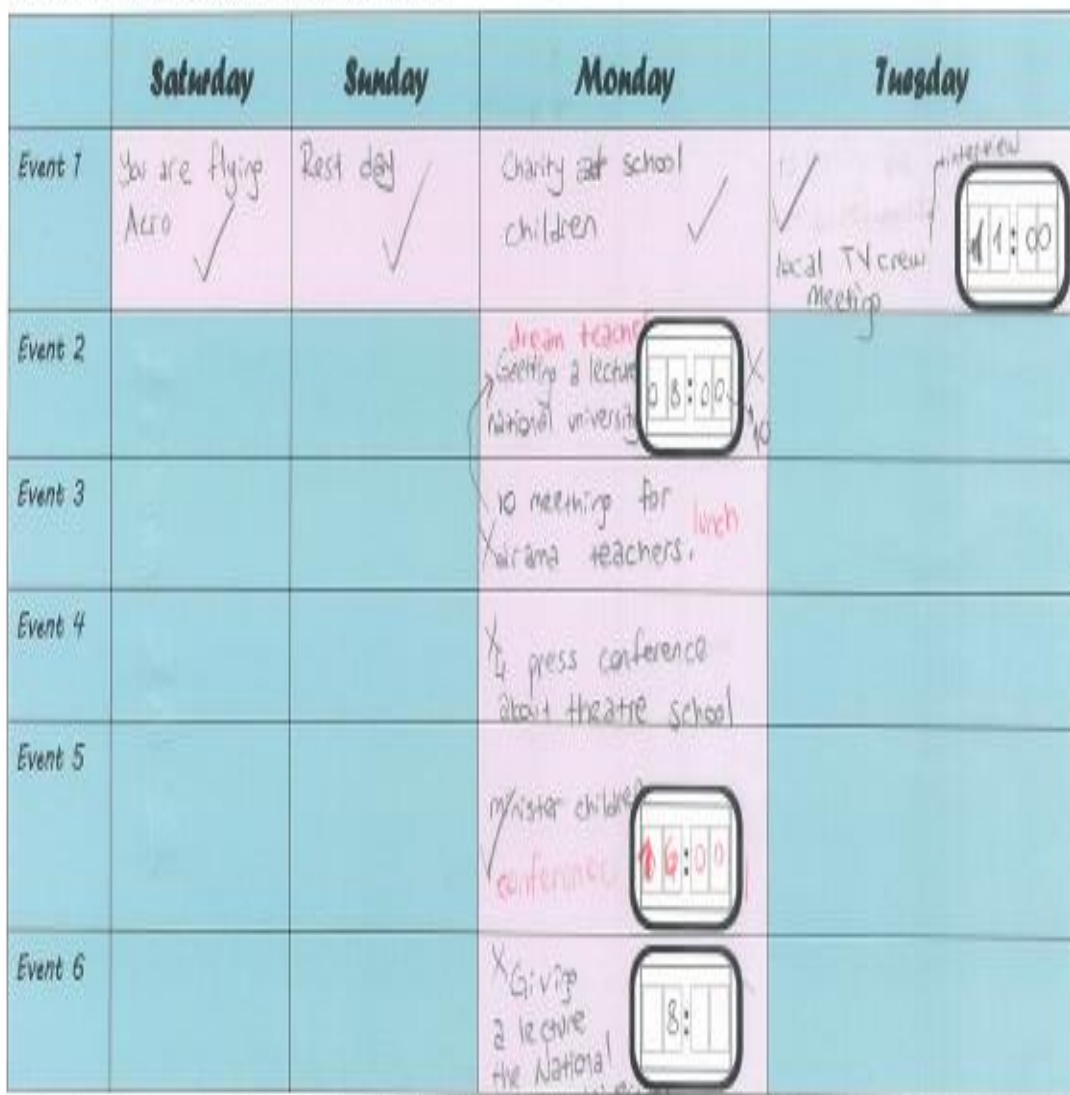 Saturday Sunday Monday Tuesday
Event 1
You are flying
Acro
Rest day
Charity at school
children
interview
local TV crew
meeting
11:00
Event 2
dream teacher
Geetting a lecture
national university
08:00
10
Event 3
10 meething for
lunch
drama teachers.
Event 4
4 press conference
about theatre school
Event 5
minister children
conference
16:00
Event 6
Givig
a lecture
the National
8: